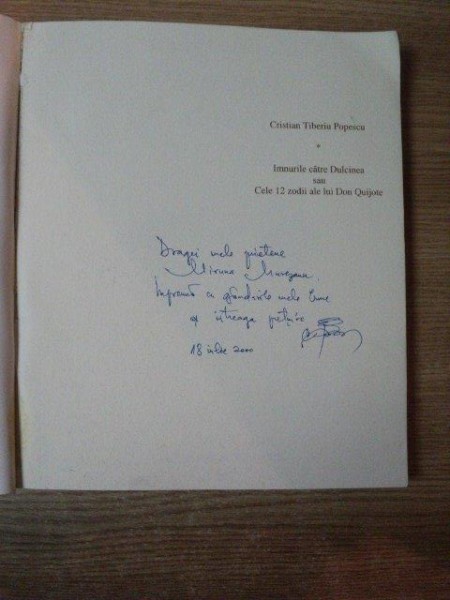 Cristian Tiberiu Popescu
*
Imnurile către Dulcinea
sau
Cele 12 zodii ale lui Don Quijote
Dragei mele prietene
Miruna Mureșanu
Împreună cu gândurile mele bune
și întreaga prețuire
18 iulie 2000